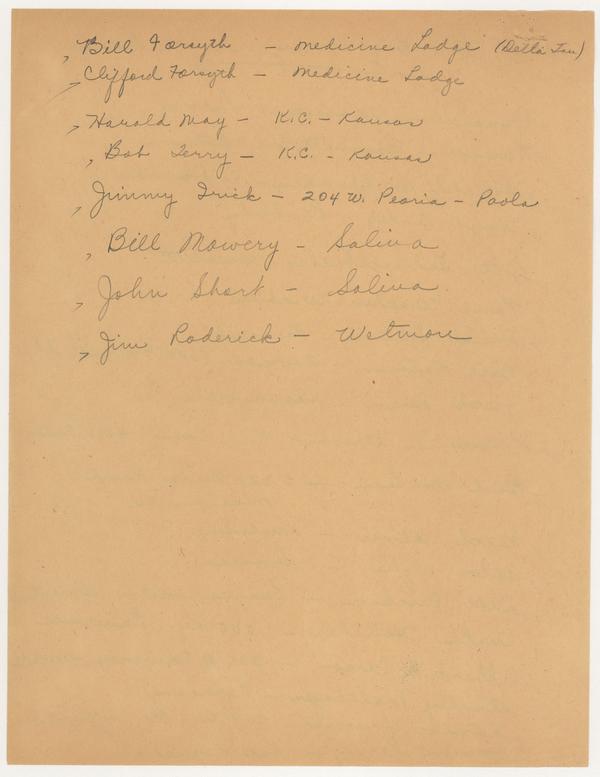 Bill Forsyth - Medicine Lodge (Delta Tau)
Clifford Forsyth - Medicine Lodge
Harold May - K.C. - Kansas
Bob Terry - K.C. - Kansas
Jimmy Trick - 204 W. Peoria - Paola
Bill Mowery - Salina
John Short - Salina
Jim Roderick - Wetmore